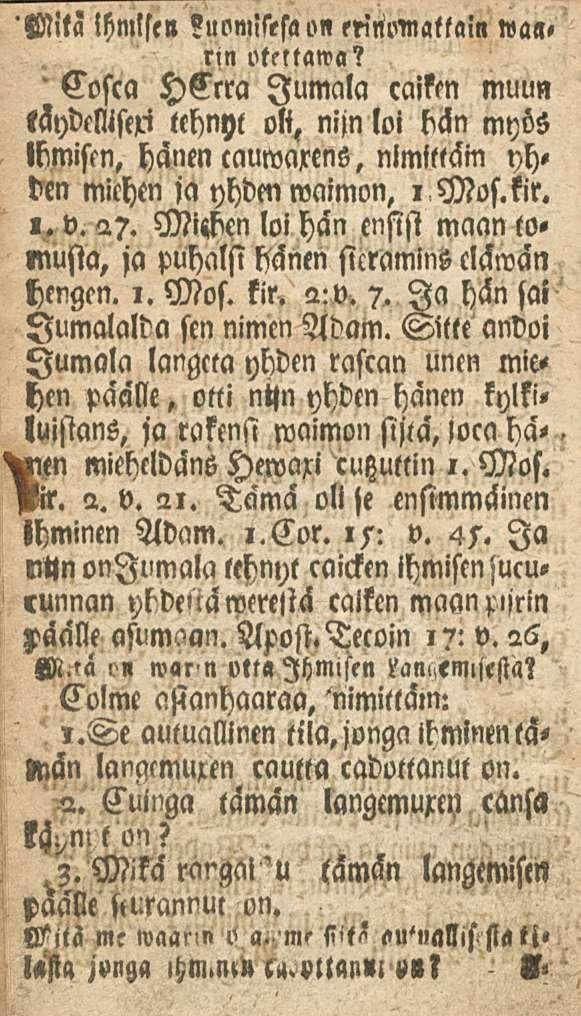 Mitä ihmisen Luomisesa on erinomattain waa-
rin otettawa?
Cosca HErra Jumala caiken muun
täydellisexi tehnyt oli, nijn loi hän myös
Ihmisen, hänen cauwaxens, nimittäin yh-
den miehen ja yhden waimon, 1. Mos. kir.
1. v. 27. Miehen loi hän ensist maan to-
musta, ja puhalsi hänen sieramins eläwän
hengen. 1. Mos. kir. 2: v. 7. Ja hän sai
Jumalalda sen nimen Adam. Sitte andoi
Jumala langeta yhden rascan unen mie-
hen päälle, otti nijn yhden hänen kylki-
luistans, ja rakensi waimon sijtä, joca hä-
nen mieheldäns Hewaxi cutzuttin 1. Mos.
kir. 2. v. 21. Tämä oli se ensimmäinen
ihminen Adam. 1. Cor. 15: v. 45. Ja
nijn on Jumala tehnyt caicken ihmisen sucu-
cunnan yhdestä werestä caiken maan pijrin
päälle asumaan. Apost. Tecoin 17: v. 26,
Mitä on warin otta Ihmisen Langemisesta?
Colme asianhaaraa, nimittäin:
1. Se autuallinen tila, jonga ihminen tä-
män langemuxen cautta cadottanut on.
2. Cuinga tämän langemuxen cansa
käynyt on?
3. Mikä rangaistu tämän langemisen
päälle seurannut on.
Mitä me waarin otamme sijtä autuallisesta ti-
lasta jonga ihminen cadottanut on?